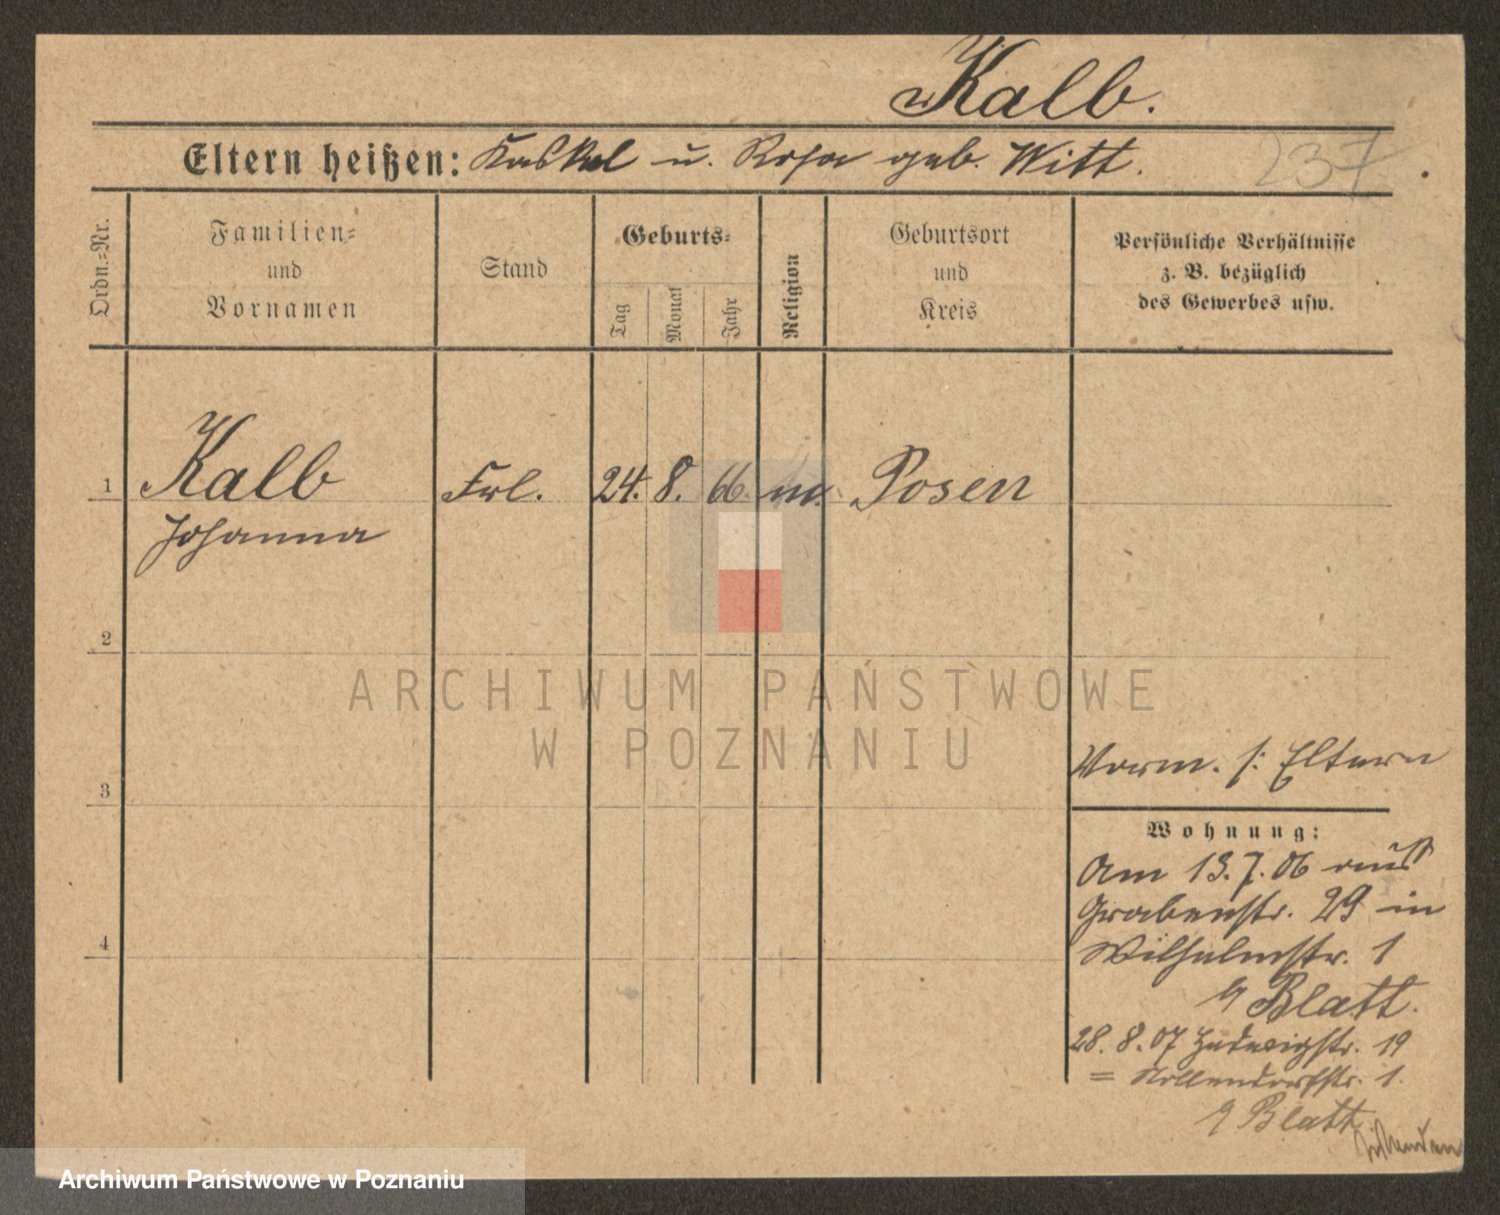 Kalb.
Eltern heißen: Kaskel u. Rosa geb. Witt.
237
Ordn.-Nr.
Familien- und Vornamen
Stand
Geburts-
Tag
Monat
Jahr
Religion
Geburtsort und Kreis
Persönliche Verhältnisse z. B. bezüglich des Gewerbes usw.
1 Kalb Frl. 24. 8. 66. m. Posen
Johanna
2
ARCHIWUM PAŃSTWOWE
W POZNANIU
Vorm. s: Eltern
3
Wohnung:
Am 13.7.06 aus
Grabenstr. 29 in
Wilhelmstr. 1
4
Blatt.
28. 8. 07 Hedwigstr. 19
= Nollendorfstr. 1.
Blatt
Archiwum Państwowe w Poznaniu